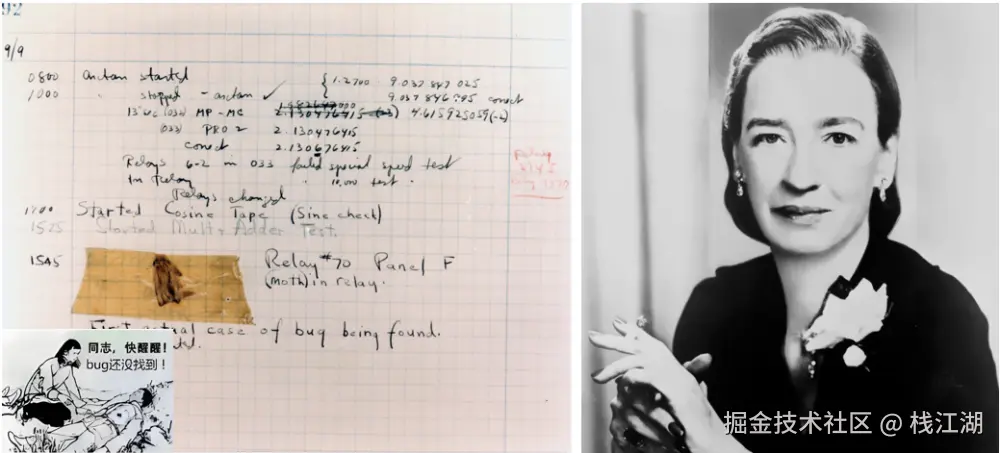 92
9/9
0800 Antan started { 1.2700 9.037 847 025
1000 " stopped - antan ✓ 9.037 846 995 correct
13"uc (032) MP - MC 2.130476415 (-3) 4.615925059(-2)
(033) PRO 2 2.130476415
correct 2.130676415
Relays 6-2 in 033 failed special speed test
In Relay " 10,000 test.
Relays changed
1700 Started Cosine Tape (Sine check)
1525 Started Mult + Adder Test.
1545 Relay #70 Panel F
(moth) in relay.
First actual case of bug being found.
同志，快醒醒！
bug还没找到！
掘金技术社区 @ 栈江湖